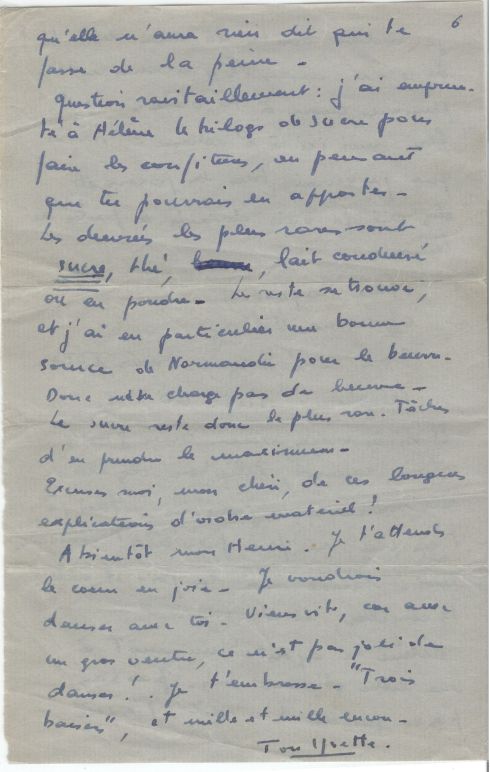 6
qu'elle n'aura rien dit qui te
fasse de la peine -
Question ravitaillement : j'ai emprun-
té à Hélène le kilogs de sucre pour
faire les confitures, en pensant
que tu pourrais en apporter -
Les denrées les plus rares sont
sucre, thé, lait condensé
ou en poudre - Le reste se trouve,
et j'ai en particulier une bonne
source de Normandie pour le beurre.
Donc ne te charge pas de beurre -
Le sucre reste donc le plus rare. Tâches
d'en prendre le maximum -
Excuses moi, mon chéri, de ces longues
explications d'ordre matériel !
A bientôt mon Henri. Je t'attends
le coeur en joie - Je voudrais
danser avec toi - Viens vite, car avec
un gros ventre, ce n'est pas joli de
danser ! . Je t'embrasse - "Trois
baisers", et mille et mille encore -
Ton Yvette.